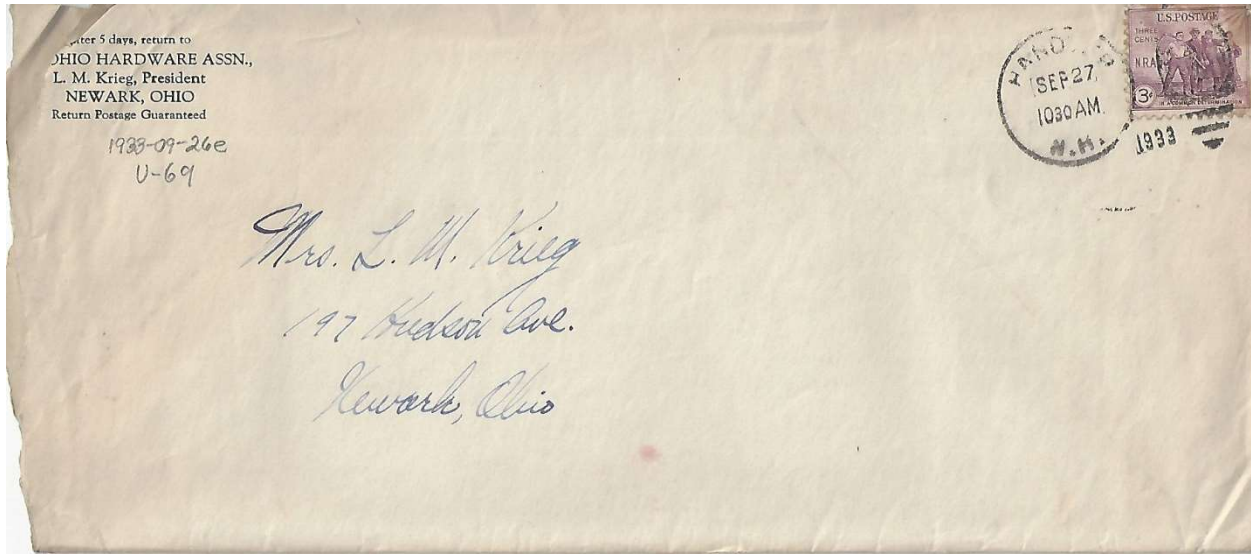 after 5 days, return to
OHIO HARDWARE ASSN.,
L. M. Krieg, President
NEWARK, OHIO
Return Postage Guaranteed
1933-09-26e
U-69
HANO
SEP 27
1030 AM
N.H.
1933
U.S. POSTAGE
THREE
CENTS
N.R.A.
3¢
IN A COMMON DETERMINATION
Mrs. L. M. Krieg
197 Hudson Ave.
Newark, Ohio